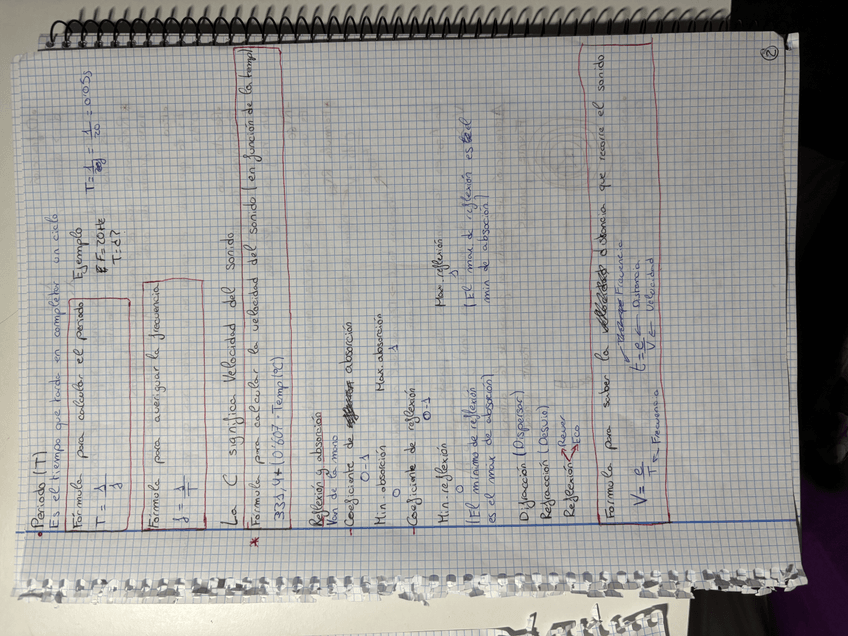 • Periodo (T)
Es el tiempo que tarda en completar un ciclo
Fórmula para calcular el periodo
T = 1/f
Ejemplo
F=20Hz
T=¿?
T = 1/f = 1/20 = 0'05s
Fórmula para averiguar la frecuencia
f = 1/T
La C significa Velocidad del sonido
* Fórmula para calcular la velocidad del sonido (en función de la temp)
331,4+(0'607·Temp(ºc)
Reflexión y absorción
Van de la mano
-Coeficiente de absorción
0-1
Min absorción Max. absorción
0 1
-Coeficiente de reflexión
0-1
Min. reflexión Max. reflexión
0 1
(El mínimo de reflexión
es el max de absorción)
(El max de reflexión es el
min de absorción)
Difracción (Dispersar)
Refracción (Desvío)
Reflexión Rever
Eco
Fórmula para saber la distancia que recorre el sonido
V = e/T ← Frecuencia
← Frecuencia
t = e/V ← Distancia
← Velocidad
2